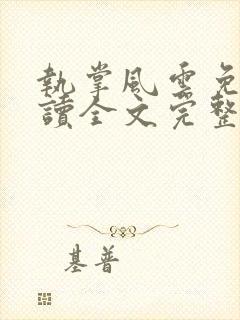 執掌風雲免
讀全文完整
基普